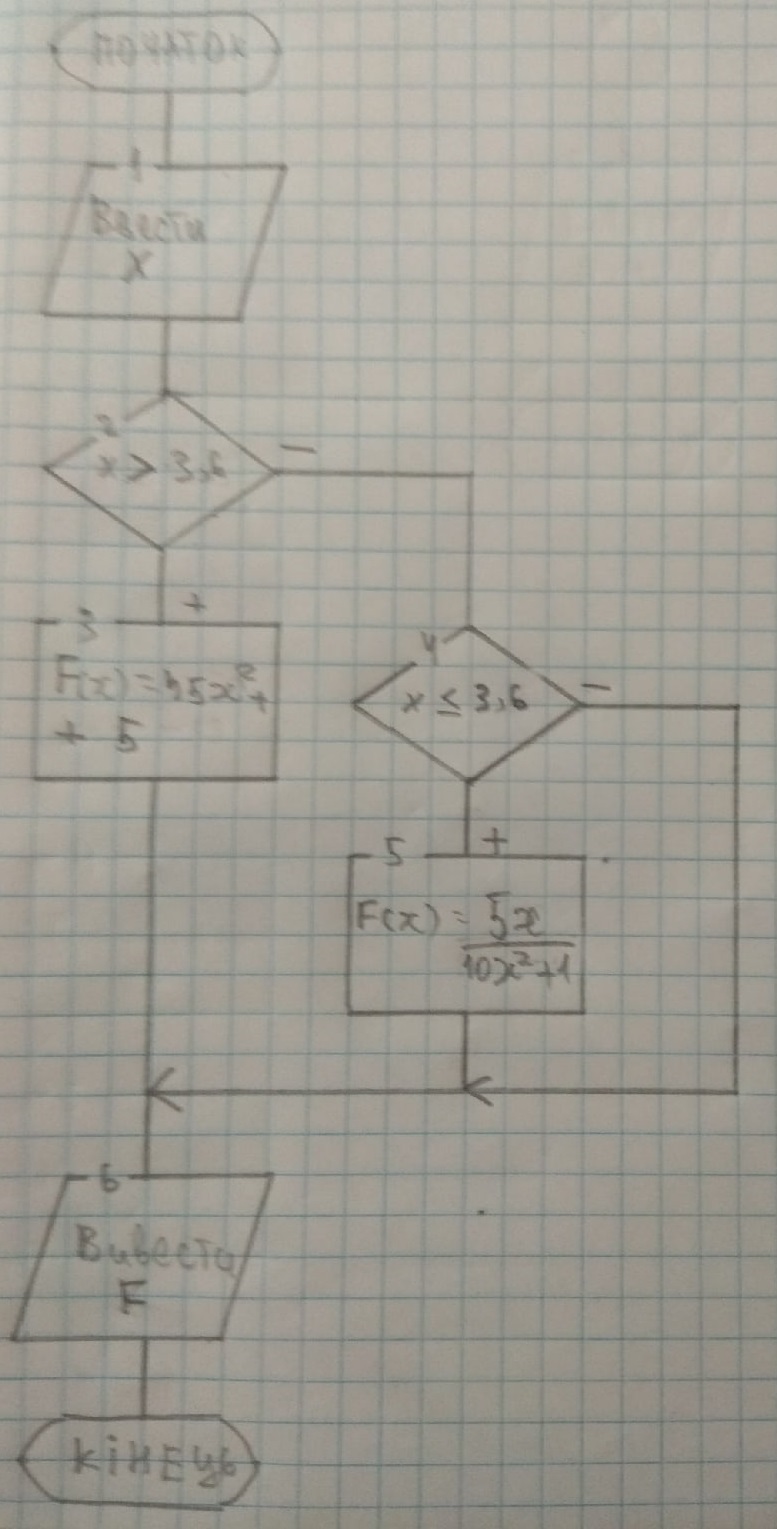 ПОЧАТОК
1
Ввести
X
2
x > 3,6
−
+
3
F(x) = 45x² +
+ 5
4
x ≤ 3,6
−
+
5
F(x) = 5x
10x²+1
6
Вивести
F
КіНЕЦЬ